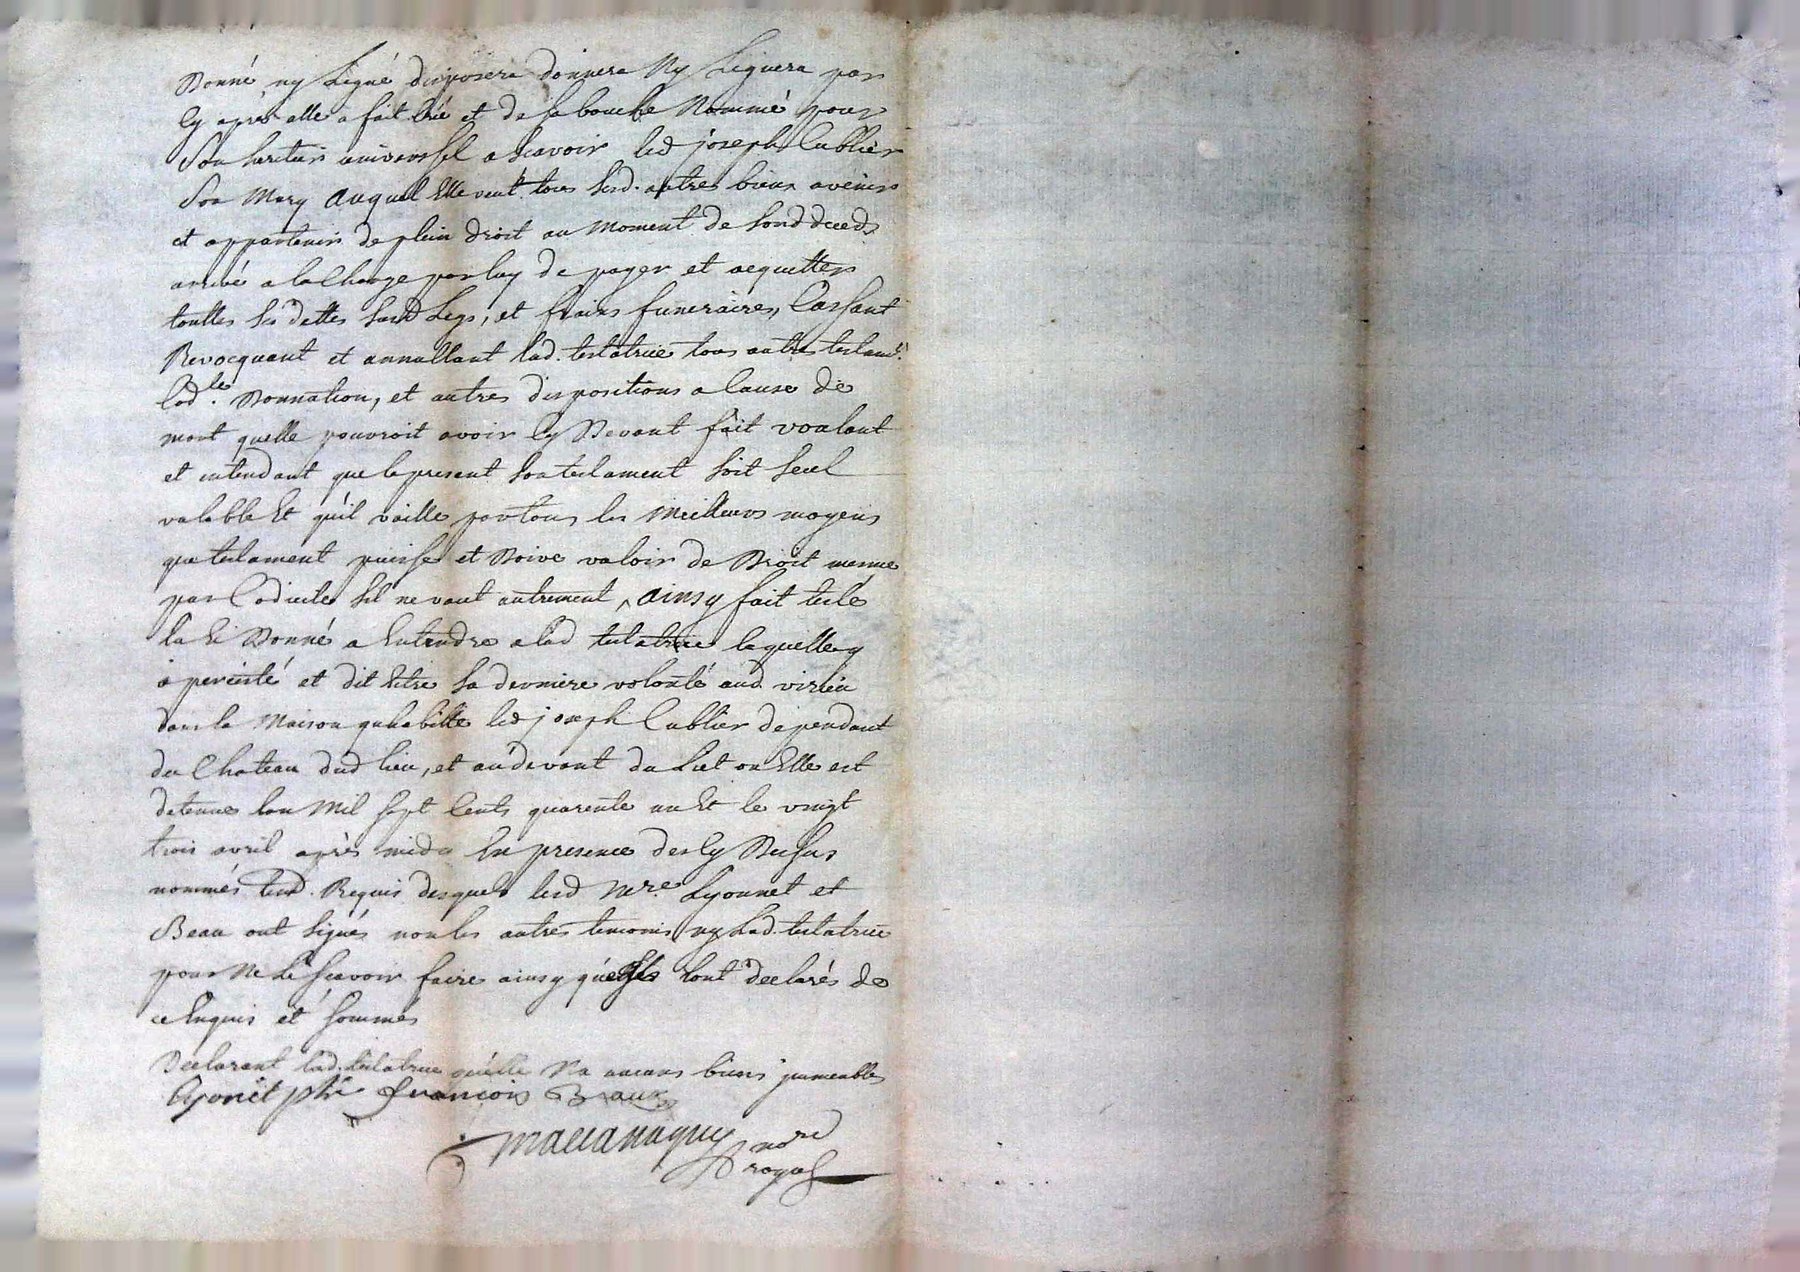 Donné, ny Légué disposera donnera Ny Léguera par
Cy après elle a fait Crée et de sa bouche Nommé pour
Son heritier universsel a scavoir led joseph Cublier
Son Mary auquel Elle veut tous sesd. autres biens avenir
et appartenir de plein droit au Moment de sond deceds
arrivé a la Charge par luy de payer et acquitter
touttes ses dettes susd Legs, et frairs funeraires, Cassant
Revocquant et annullant lad. testatrice tous autres testamt.
Codle. Donnation, et autres dispositions a Cause de
mort quelle pouvroit avoir Cy Devant fait voulant
et entendant que le present son testament soit seul
valable Et qu'il vaille par tous les Meilleurs moyens
que testament puisse et Doive valoir de Droit mesme
par Codicile sil ne vaut autrement, ainsy fait testé
lu Et Donné a Entendre a lad testatrice laquelle y
a percisté et dit Estre sa derniere volonté aud virieu
dans la Maison quhabitte led joseph Cublier dependant
du Chateau dud lieu, et audevant du Lict ou Elle est
detenue lan Mil sept Cents quarente un Et le vingt
trois avril après midy En presence des Cy Dessus
nommés temd. Requis desquels lesd Mre. Lyonnet et
Beau ont signés non les autres temoins ny Lad. testatrice
pour Ne le scavoir faire ainsy quels lont declarés de
ce Enquis et sommés
Declarant lad. testatrice qu'elle Na aucuns biens jmmeubles
Lyonēt ptre françois Beau
nore
royal